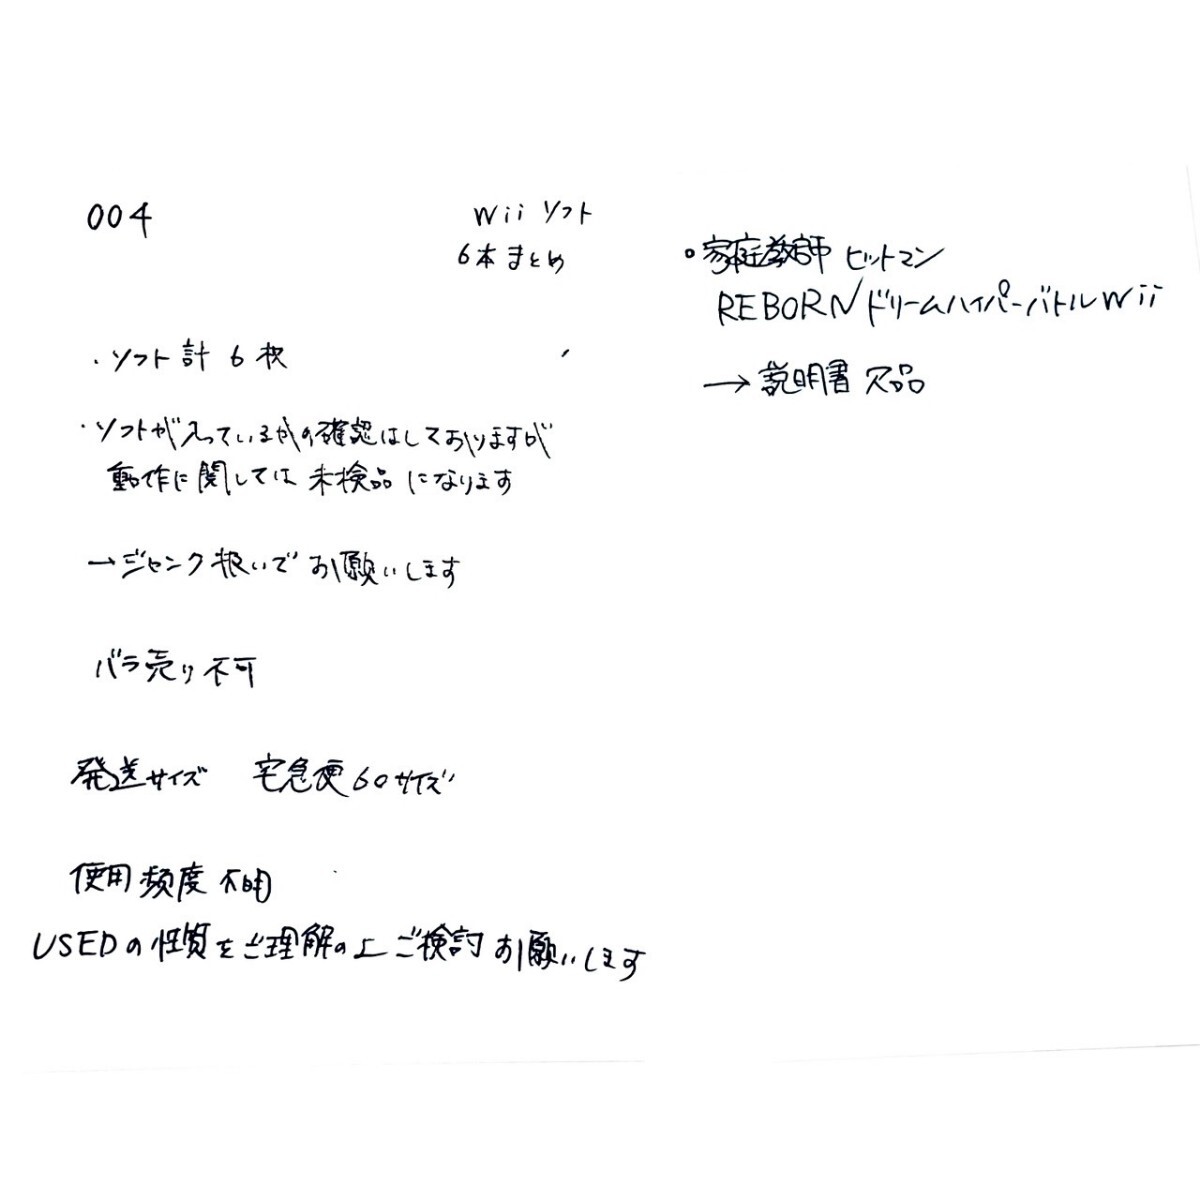 004
Wii ソフト
6本まとめ
・ソフト計6枚
・ソフトが入っているかの確認はしておりますが
動作に関しては未検品になります
→ジャンク扱いでお願いします
バラ売り不可
発送サイズ 宅急便60サイズ
使用頻度不明
USEDの性質をご理解の上ご検討お願いします
。家庭教師 ヒットマン
REBORNドリームハイパーバトルWii
→説明書欠品